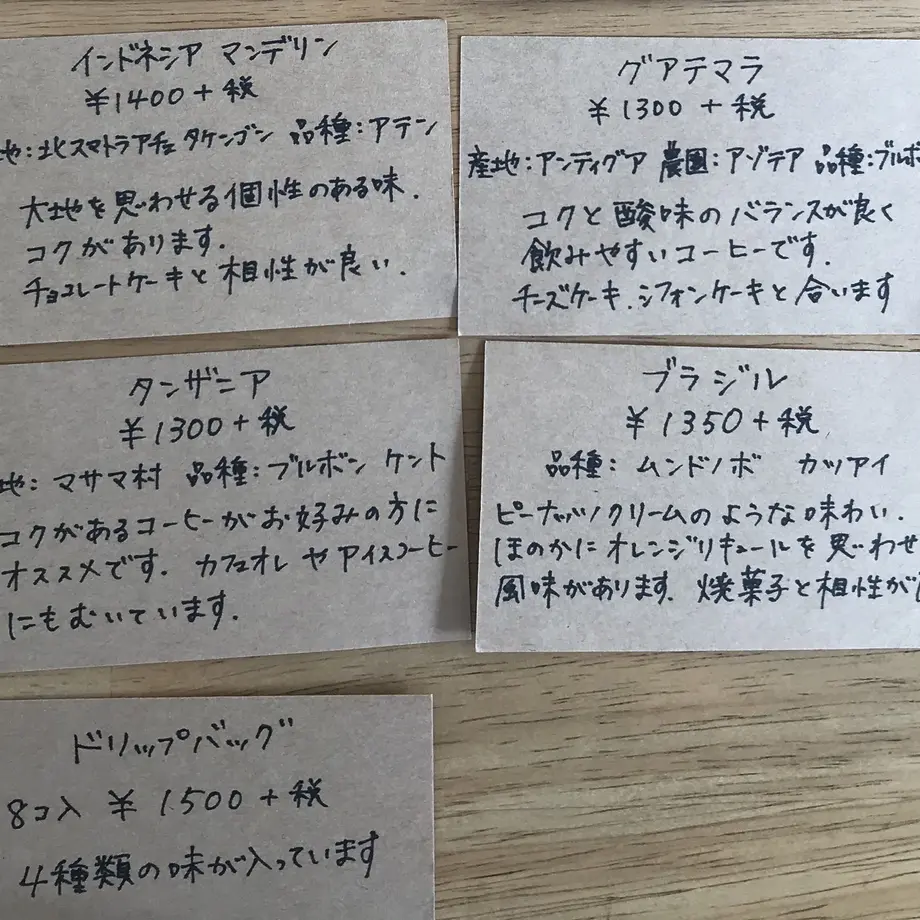 インドネシア マンデリン
¥1400+税
地:北スマトラアチェ タケンゴン 品種:アテン
大地を思わせる個性のある味.
コクがあります.
チョコレートケーキと相性が良い.
グアテマラ
¥1300+税
産地:アンティグア 農園:アゾテア 品種:ブルボ
コクと酸味のバランスが良く
飲みやすいコーヒーです.
チーズケーキ.シフォンケーキと合います
タンザニア
¥1300+税
地:マサマ村 品種:ブルボン ケント
コクがあるコーヒーがお好みの方に
オススメです. カフェオレやアイスコーヒー
にもむいています.
ブラジル
¥1350+税
品種:ムンドノボ カツアイ
ピーナッツクリームのような味わい.
ほのかにオレンジリキュールを思わせ
風味があります. 焼菓子と相性が
ドリップバッグ
8コ入 ¥1500+税
4種類の味が入っています